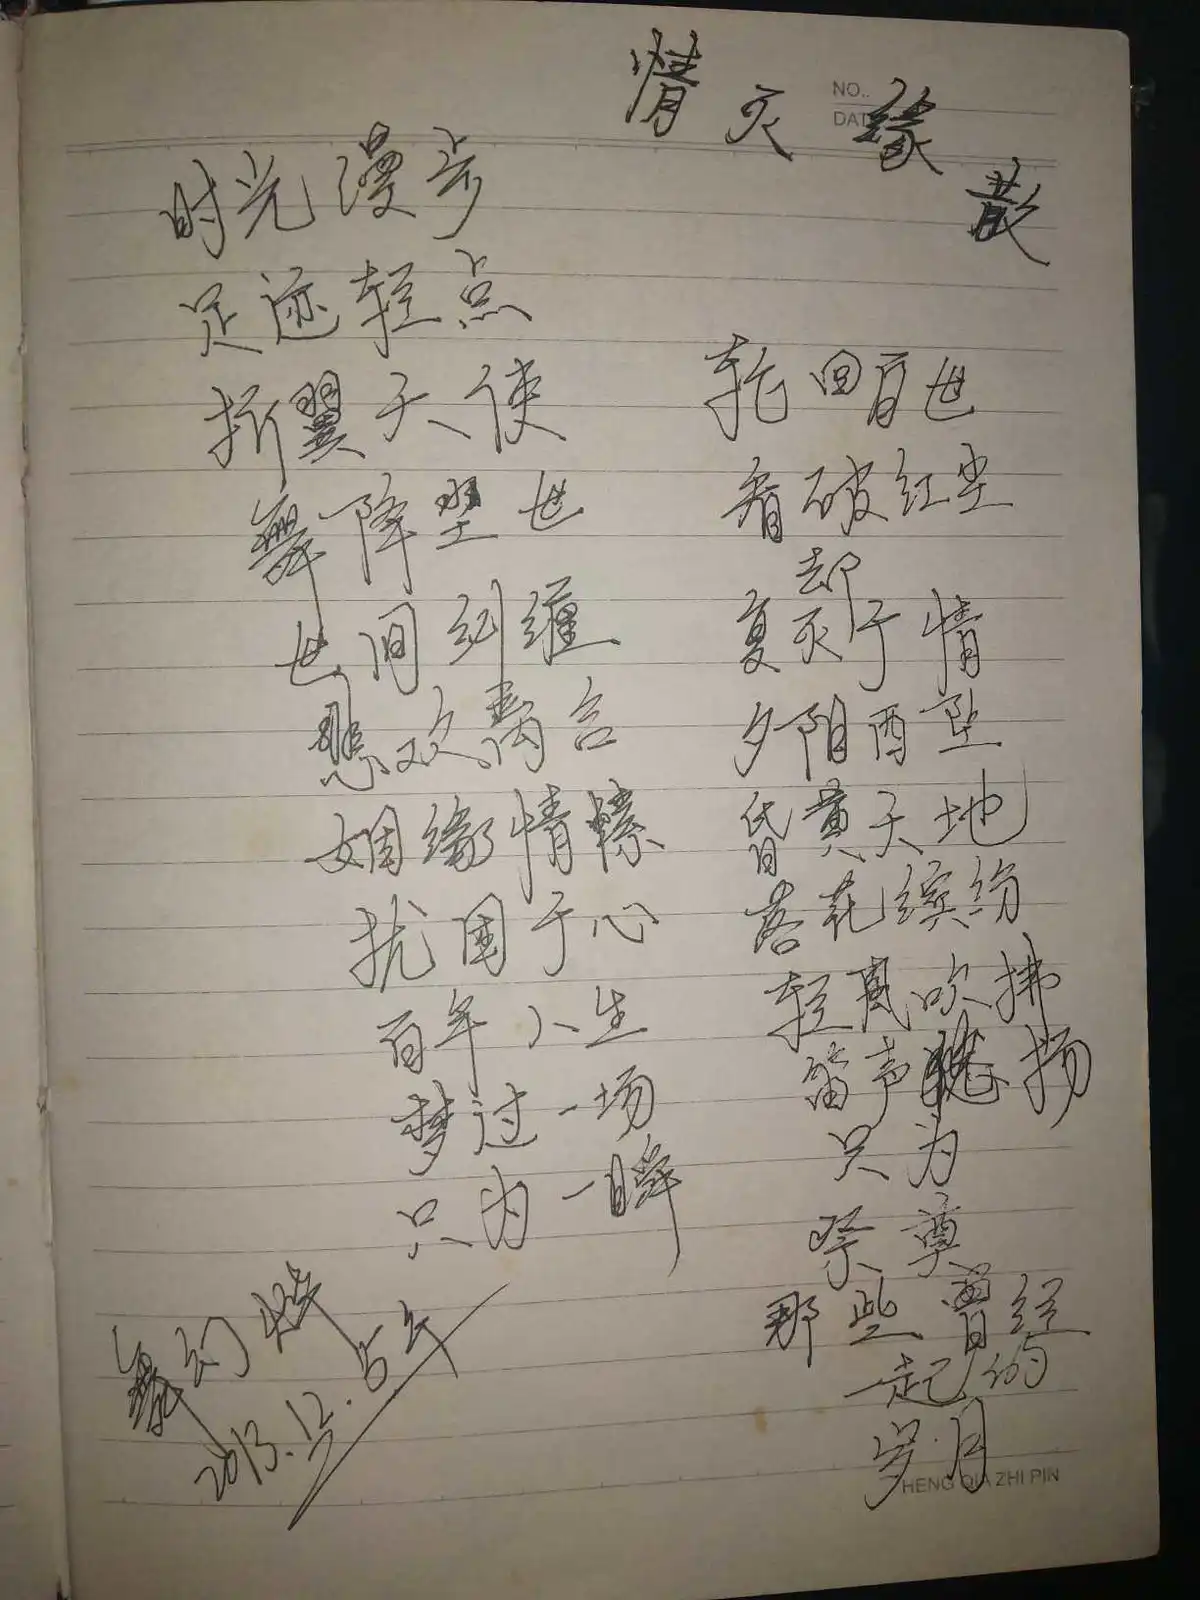 情灭缘散
NO.
DAT
时光漫步
足迹轻点
折翼天使
舞降堕世
世间纠缠
悲欢离合
姻缘情愫
扰困于心
百年人生
梦过一场
只为一瞬
幻
2013.12.5午
轮回百世
看破红尘
却
复灭于情
夕阳西坠
昏黄天地
落花缤纷
轻风吹拂
笛声悠扬
只为
祭奠
那些曾经
一起的
岁月
HENG QIA ZHI PIN